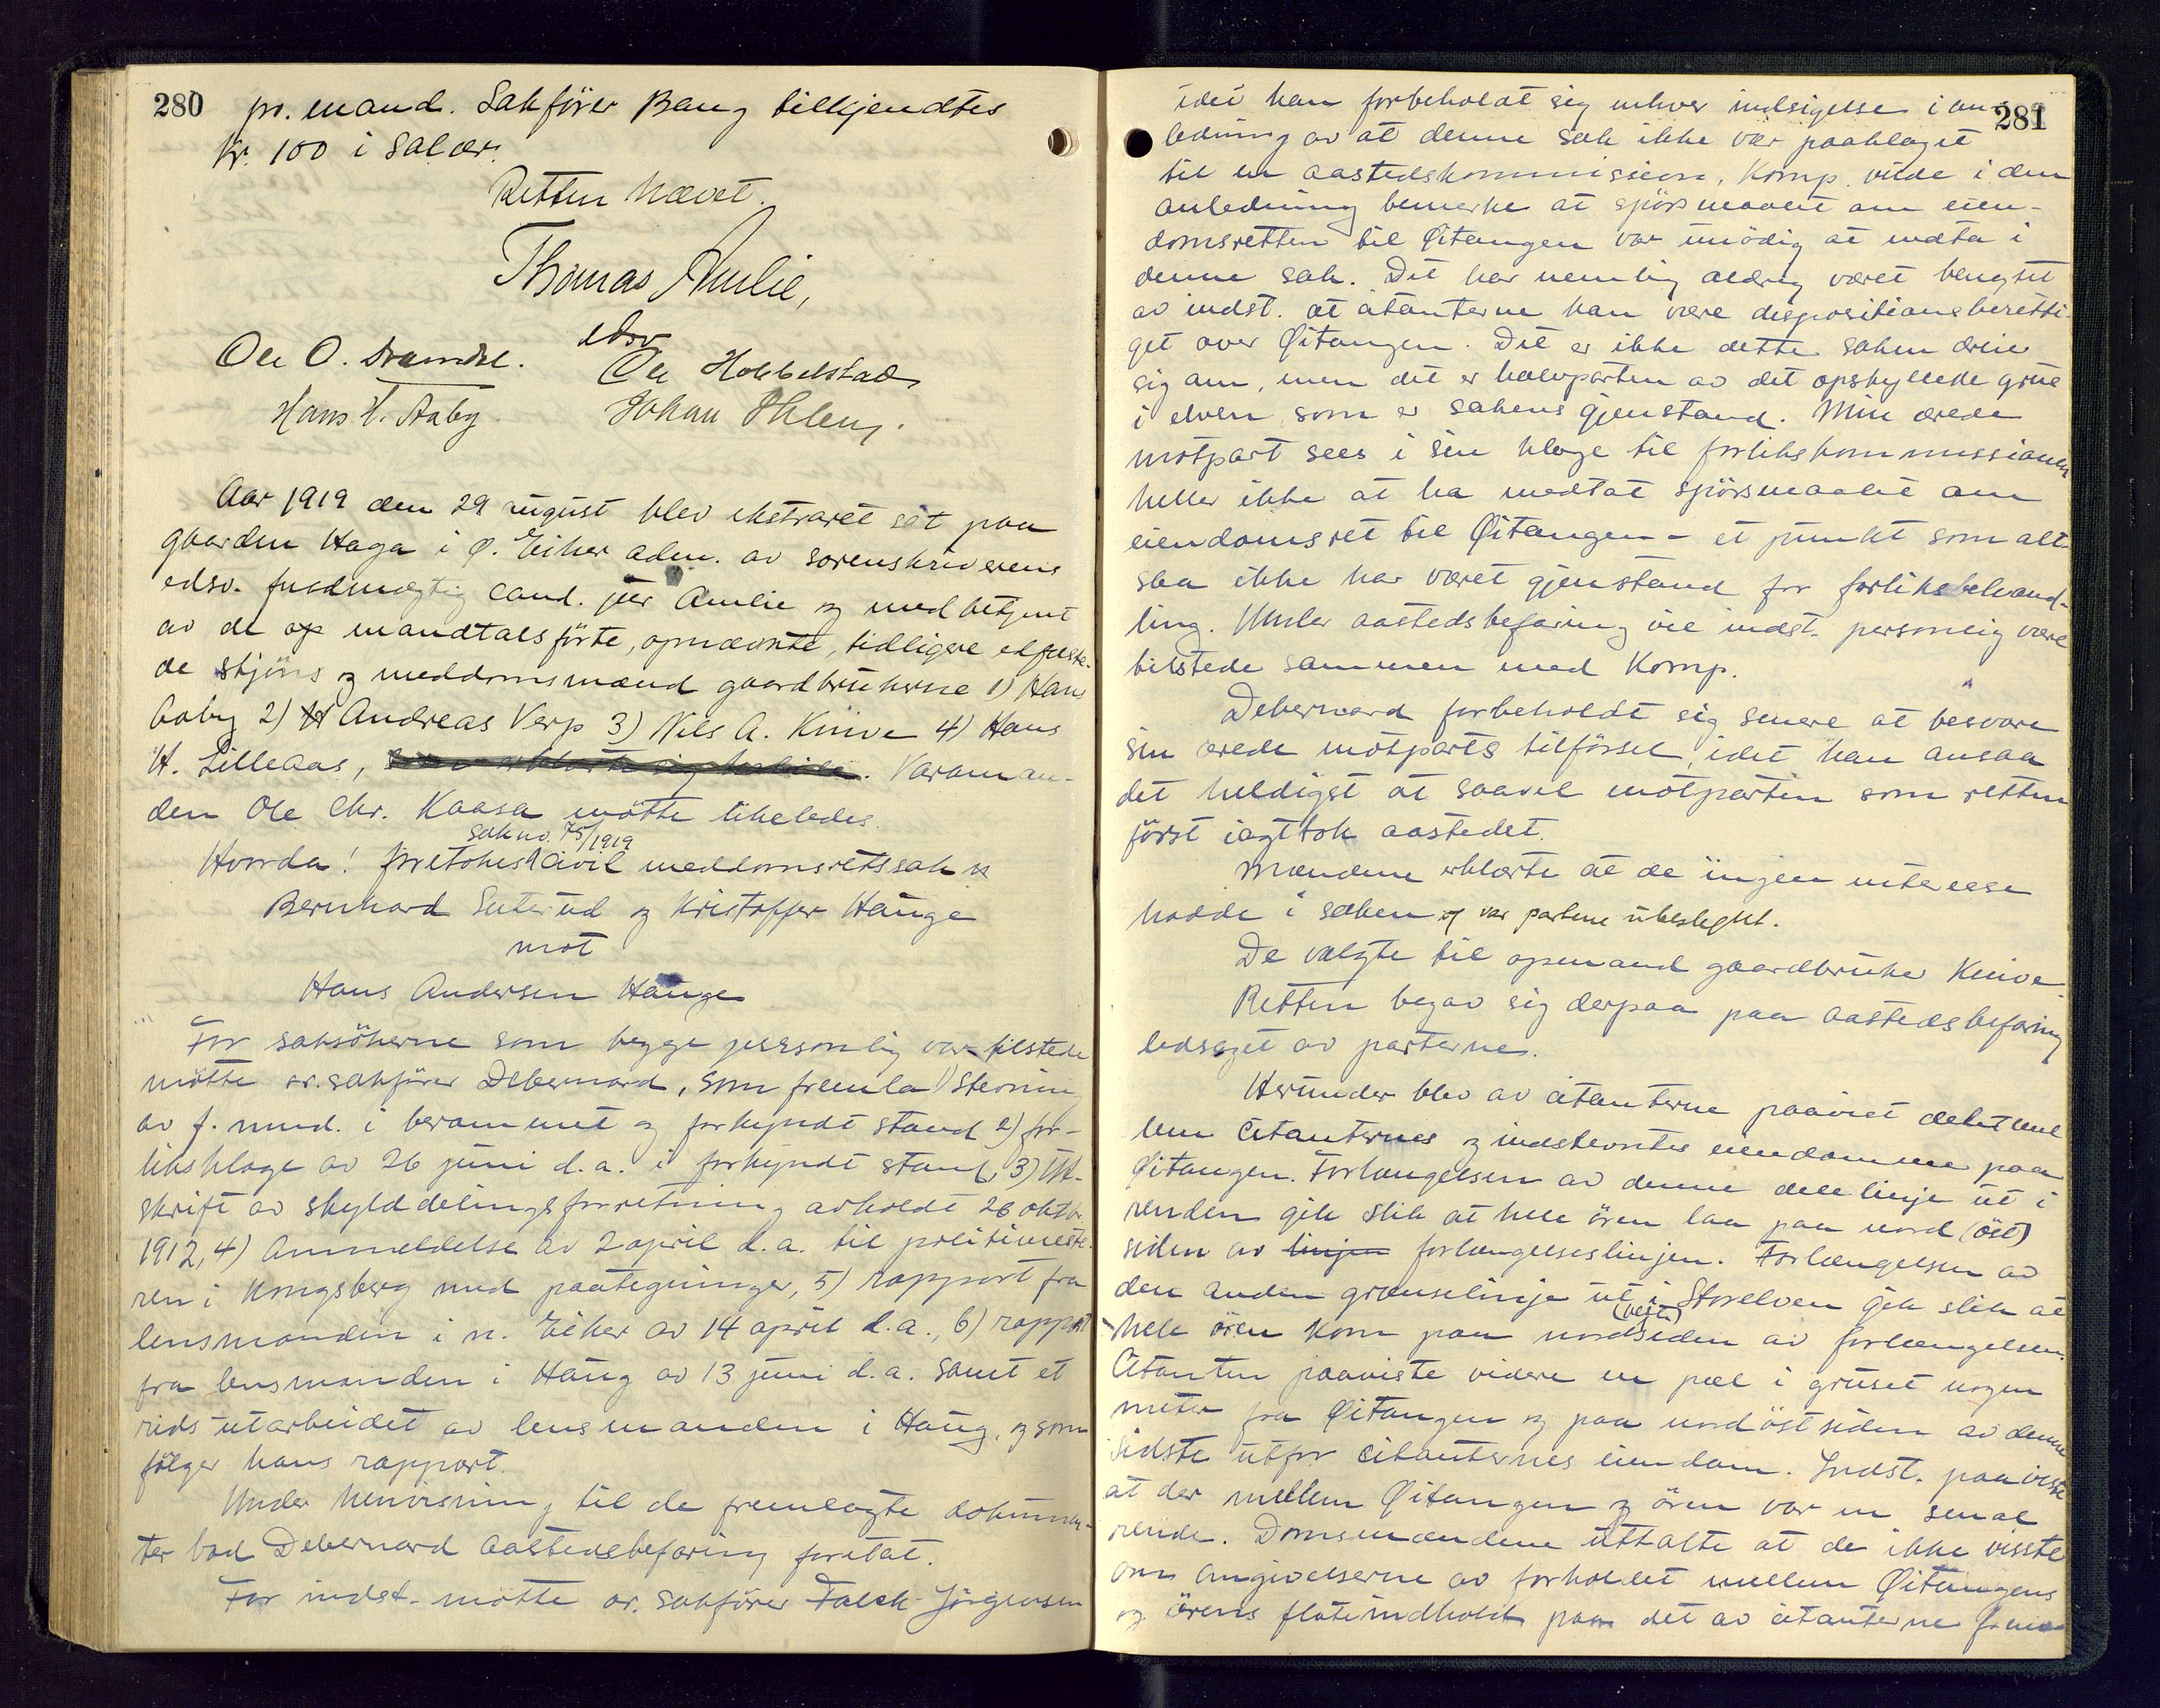 280 pr. mand. Sakfører Bang tilkjendtes
kr. 100 i salær.
Retten hævet.
Thomas Amlie,
edsv
Ole O. Ole Hobbelstad
Hans H. Aaby. Johan Ihlen.
Aar 1919 den 29 august blev ekstraret sat paa
gaarden Haga i Ø. Eiker adm. av sorenskriverens
edsv. fuldmægtig cand. jur Amlie og med betjent
av de op mandtalsførte, opnævnte, tidligere edfæste-
de skjøns og meddomsmænd gaardbrukerne 1) Hans
Aaby 2) H Andreas Verp 3) Nils A. Knive 4) Hans
H. Lilleaas, . Varaman-
den Ole Chr. Kaasa møtte likeledes.
sak no. 75/1919
Hvorda! foretokes civil meddomsretssak
Bernhard Suterud og Kristoffer Hauge
mot
Hans Andersen Hauge
For saksøkerne som begge personlig var tilstede
møtte or. sakfører Debernard, som fremla 1) stevning
av f. mnd. i berammet og forkyndt stand 2) for-
liksklage av 26 juni d.a. i forkyndt stand, 3) Ut-
skrift av skylddelingsforretning avholdt 26 oktbr
1912, 4) Anmeldelse av 2 april d.a. til politimeste-
ren i Kongsberg med paategninger, 5) rapport fra
lensmanden i n. Eiker av 14 april d.a., 6) rapport
fra lensmanden i Haug av 13 juni d.a. samt et
rids utarbeidet av lensmanden i Haug, og som
følger hans rapport.
Under henvisning til de fremlagte dokumen-
ter bad Debernard aastedsbefaring foretat.
For indst. møtte or. sakfører Falck-Jørgensen
281
idet han forbeholdt sig enhver indsigelse i an-
ledning av at denne sak ikke var paaklaget
til en aastedskommission. Komp. vilde i den
anledning bemerke at spørsmaalet om eien-
domsretten til Øitangen var unødig at medta i
denne sak. Det har nemlig aldrig været benegtet
av indst. at citanterne kan være dispositionsberetti-
get over Øitangen. Det er ikke dette saken dreier
sig om, men det er halvparten av det opskyllede grus
i elven som er sakens gjenstand. Min ærede
motpart sees i sin klage til forlikskommissionen
heller ikke at ha medtat spørsmaalet om
eiendomsret til Øitangen - et punkt som alt-
saa ikke har været gjenstand for forliksbehand-
ling. Under aastedsbefaring vil indst. personlig være
tilstede sammen med Komp.
Debernard forbeholdt sig senere at besvare
sin ærede motparts tilførsel, idet han ansaa
det heldigst at saavel motparten som retten
først iagttok aastedet.
Mændene erklærte at de ingen interesse
hadde i saken og var partene ubeslegtet.
De valgte til opmand gaardbruker Knive.
Retten begav sig derpaa paa aastedsbefaring
ledsaget av parterne.
Herunder blev av citanterne paavist delet mel
lem citanternes og indstevntes eiendomme paa
Øitangen. Forlængelsen av denne dele linje ut i
renden gik slik at hele øren laa paa nord (øst)
siden av linjen forlængelseslinjen. Forlængelsen av
den anden grænselinje ut i Storelven gik slik at
(vest)
hele øren kom paa nordsiden av forlængelsen.
Citanten paaviste videre en pæl i gruset nogen
meter fra Øitangen og paa nordøstsiden av denne
sidste utfor citanternes eiendom. Indst. paaviste
at der mellem Øitangen og øren var en smal
rende. Domsmændene uttalte at de ikke visste
om angivelserne av forholdet mellem Øitangens
og ørens flateindhold paa det av citanterne frem-